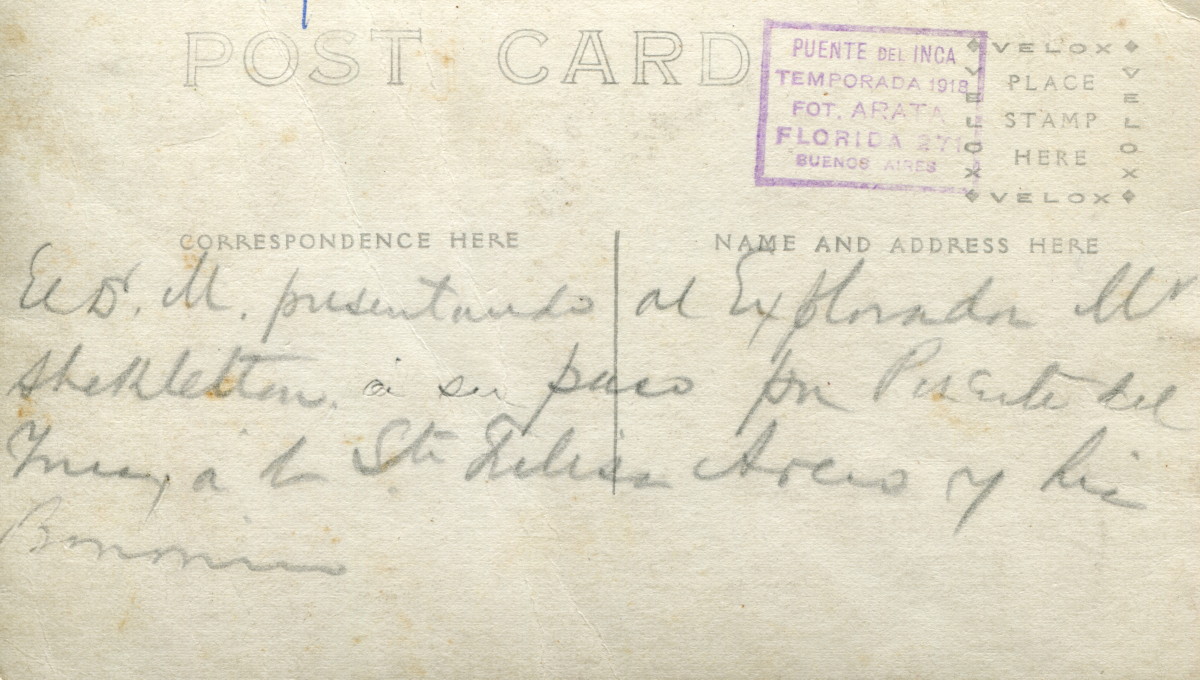 POST CARD
PUENTE DEL INCA
TEMPORADA 1918
FOT. ARATA
FLORIDA 271
BUENOS AIRES
VELOX
VELOX
PLACE
STAMP
HERE
VELOX
VELOX
CORRESPONDENCE HERE
NAME AND ADDRESS HERE
El Dr. M. presentando al Explorador Mr
Shekleton, a su paso por Puente del
Inca, a la Sta Arcio y